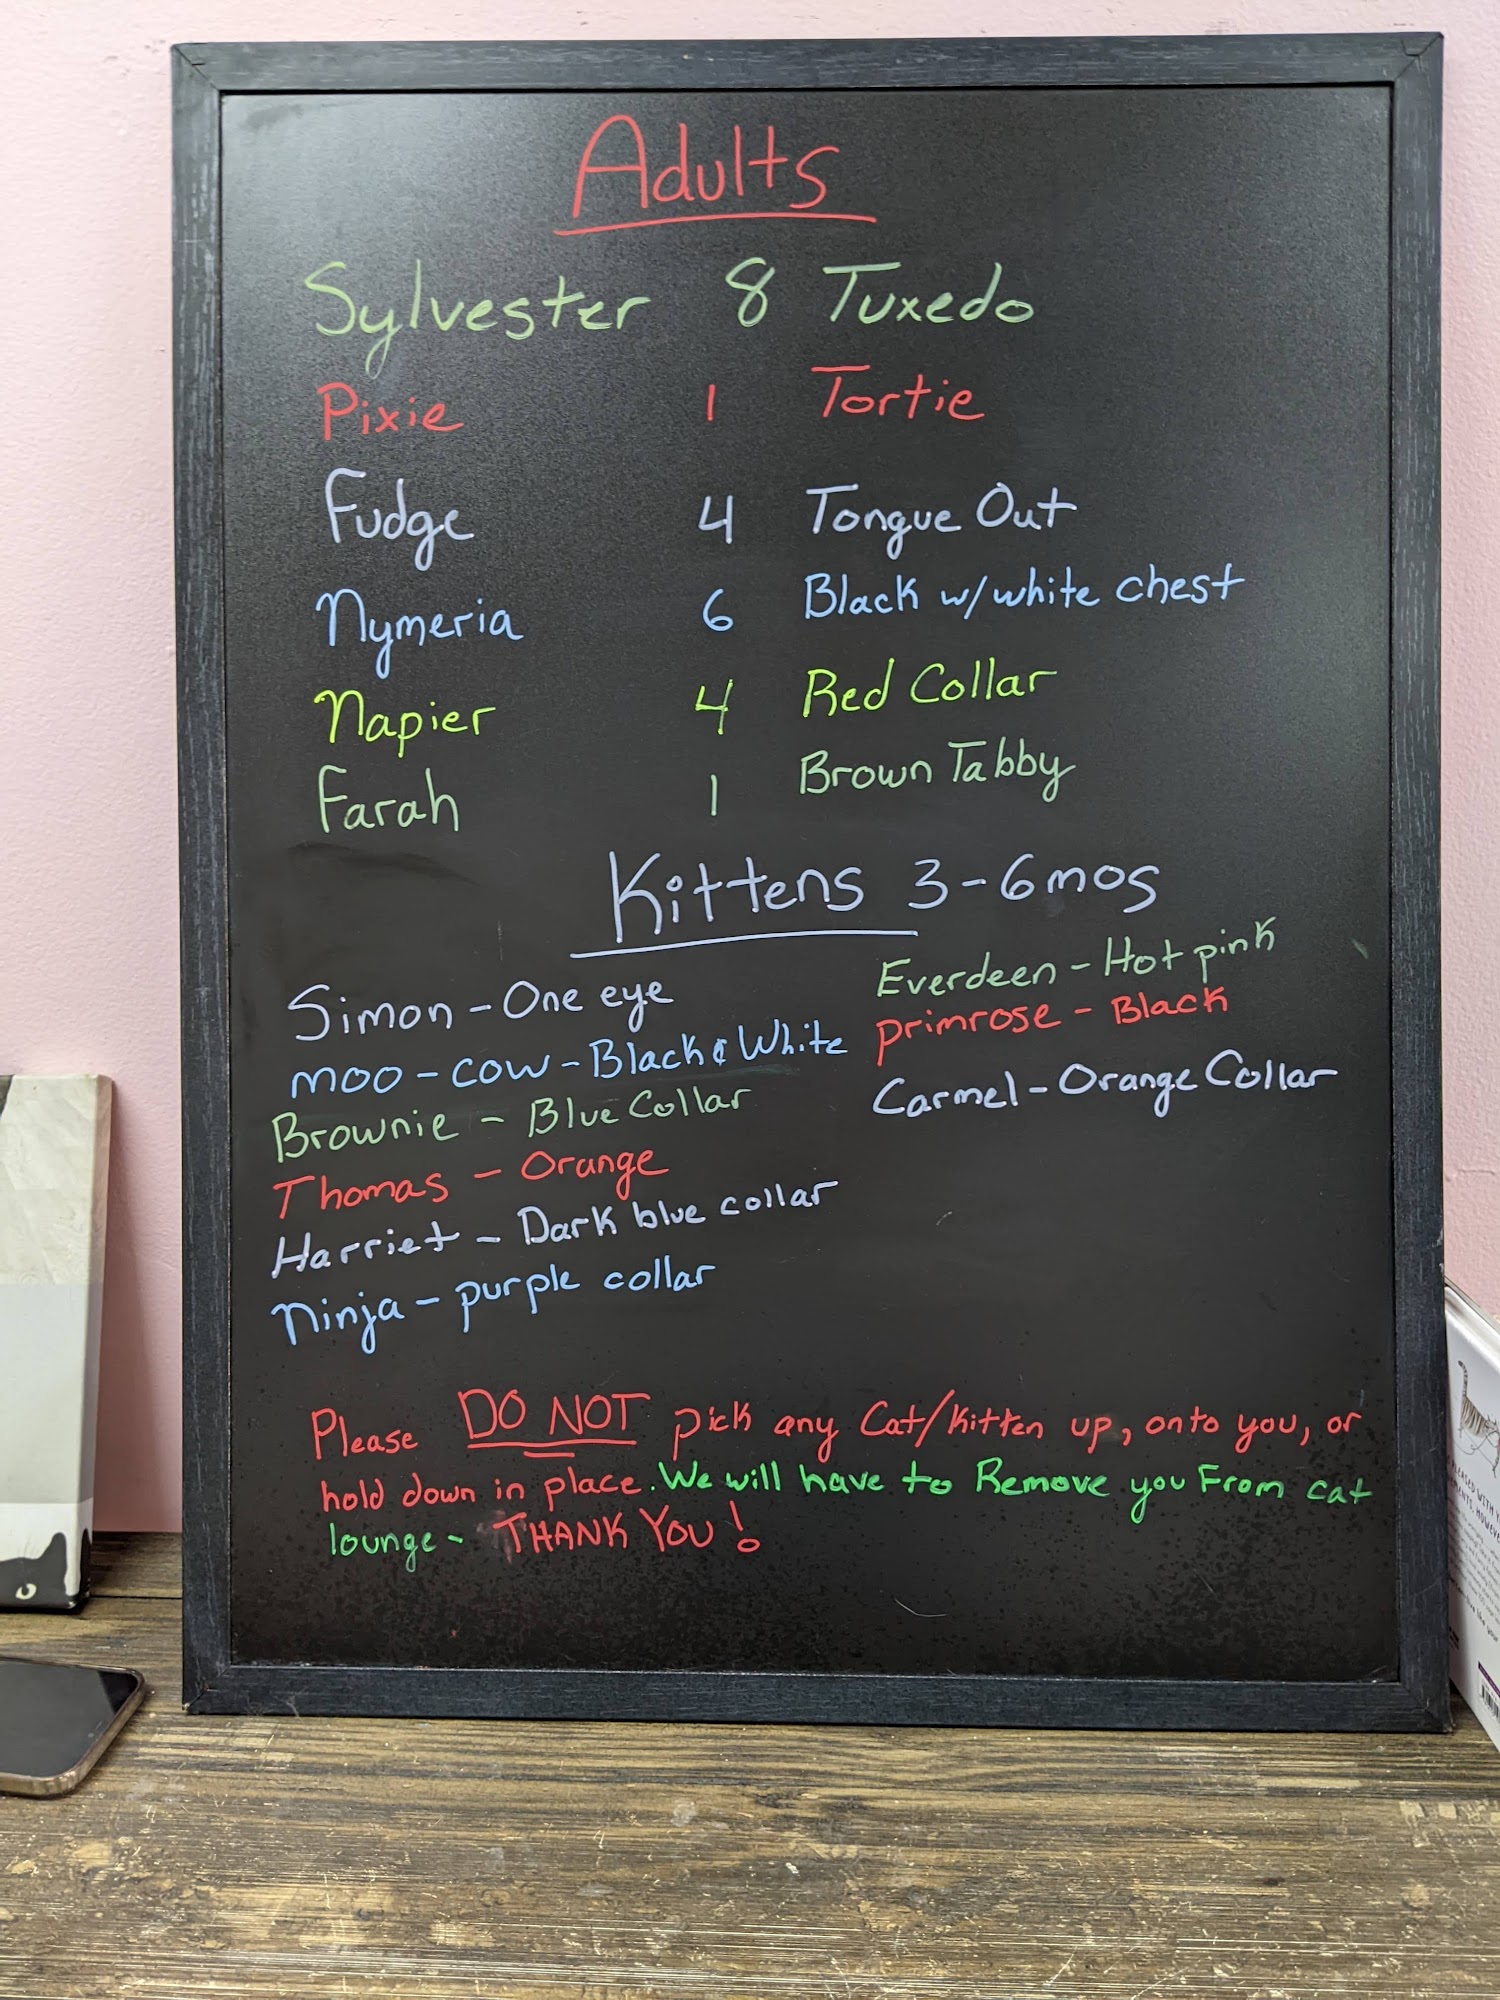 Adults
Sylvester 8 Tuxedo
Pixie 1 Tortie
Fudge 4 Tongue Out
Nymeria 6 Black w/white chest
Napier 4 Red Collar
Farah 1 Brown Tabby
Kittens 3-6mos
Simon - One eye
moo - cow - Black & White
Brownie - Blue Collar
Thomas - Orange
Harriet - Dark blue collar
Ninja - purple collar
Everdeen - Hot pink
primrose - Black
Carmel - Orange Collar
Please DO NOT pick any Cat/Kitten up, onto you, or
hold down in place. We will have to Remove you From cat
lounge - THANK YOU!